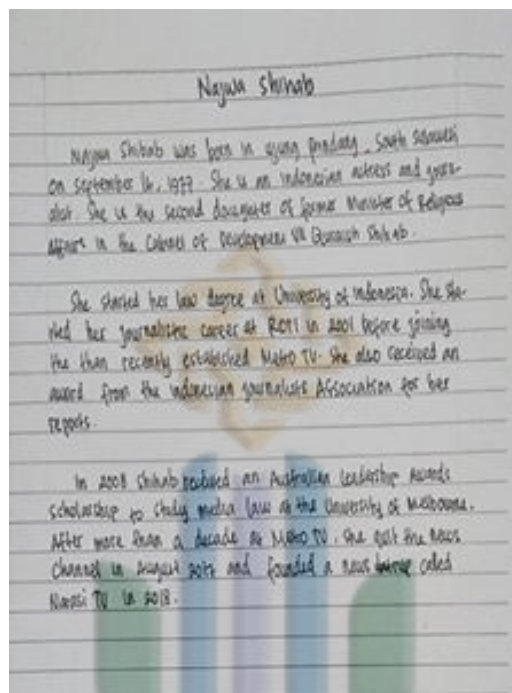 Najwa Shihab
Najwa Shihab was born in ujung pandang, South Sulawesi
on September 16, 1977. She is an indonesian actress and jour-
alist. She is the second daugater of former Minister of Religious
Affairs in the Cabinet of Development VII Quraish Shihab.
She started her law degree at University of indonesia. She sta-
rted her journalistic career at RCTI in 2001 before joining
the than recently established Metro TV. She also received an
award from the indonesian journalists Association for her
reports.
In 2008 Shihab received an Australian Leadership Awards
scholarship to study media law at the University of Melbourne.
After more than a decade at Metro TV, she quit the news
channel in August 2017 and founded a news called
Narasi TV in 2018.